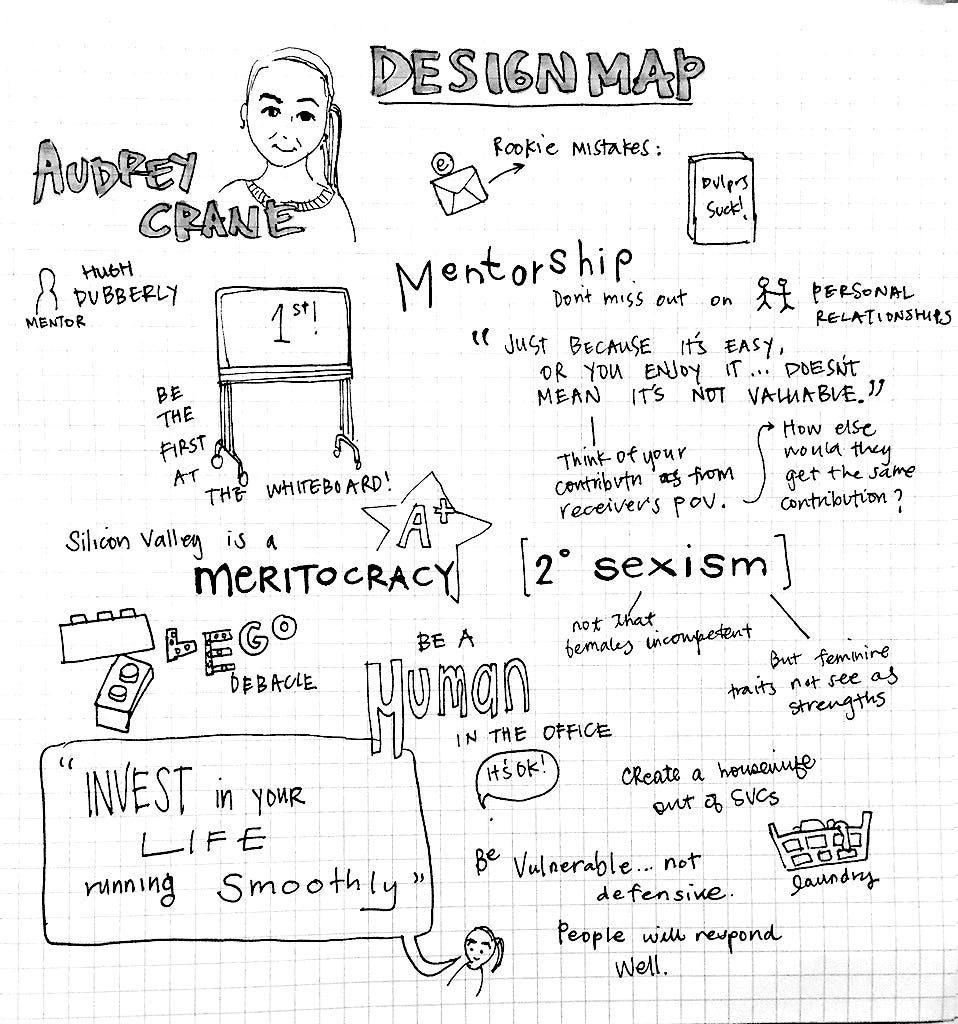 DESIGN MAP
AUDREY
CRANE
e
Rookie MISTAKES:
Dvlprs
Suck!
HUGH
DUBBERLY
MENTOR
1st!
BE
THE
FIRST
AT
THE WHITEBOARD!
Mentorship
Don't miss out on
PERSONAL
RELATIONSHIPS
"JUST BECAUSE IT'S EASY,
OR YOU ENJOY IT... DOESN'T
MEAN IT'S NOT VALUABLE."
Think of your
contributn as from
receiver's POV.
How else
would they
get the same
contribution?
Silicon Valley is a
A+
MERITOCRACY
[2° sexism]
not that
females incompetent
But feminine
traits not see as
strengths
LEGO
DEBACLE
BE A
Human
IN THE OFFICE
IT'S OK!
"INVEST in your
LIFE
running Smoothly"
Create a housewife
out of SVCs
laundry
Be Vulnerable... not
defensive.
People will respond
Well.